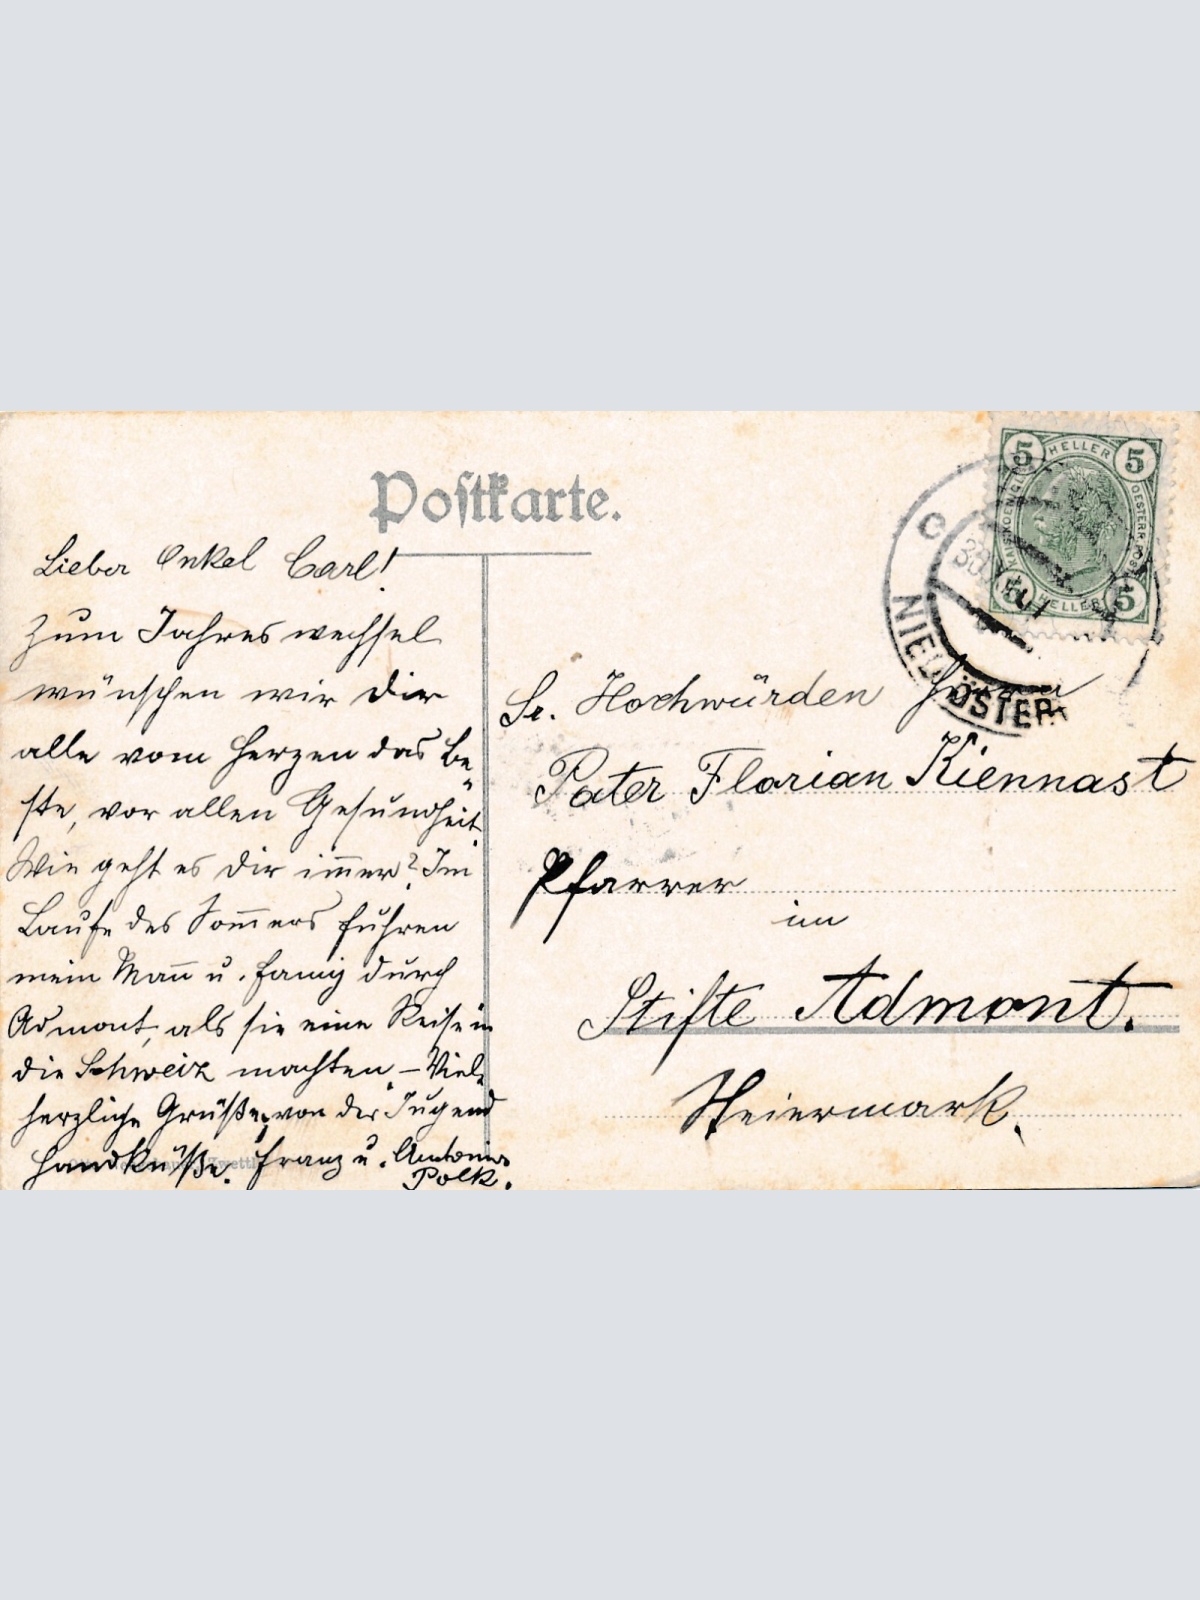 Postkarte.
Lieber Onkel Carl!
Zum Jahreswechsel
wünschen wir Dir
alle vom Herzen das Be-
ste, vor allen Gesundheit
Wie geht es Dir immer? Im
Laufe des Sommers fuhren
mein Mann u. Fanny durch
Admont, als sie eine Reise in
die Schweiz machten – Viele
herzliche Grüße, von der Jugend
Handküsse. Franz u. Antonie
Polk.
5 HELLER 5
KAISKOENIGL OESTERR POST
5 HELLER 5
NIED ÖSTER
Sr. Hochwürden Herrn
Pater Florian Kiennast
Pfarrer
im
Stifte Admont.
Steiermark.